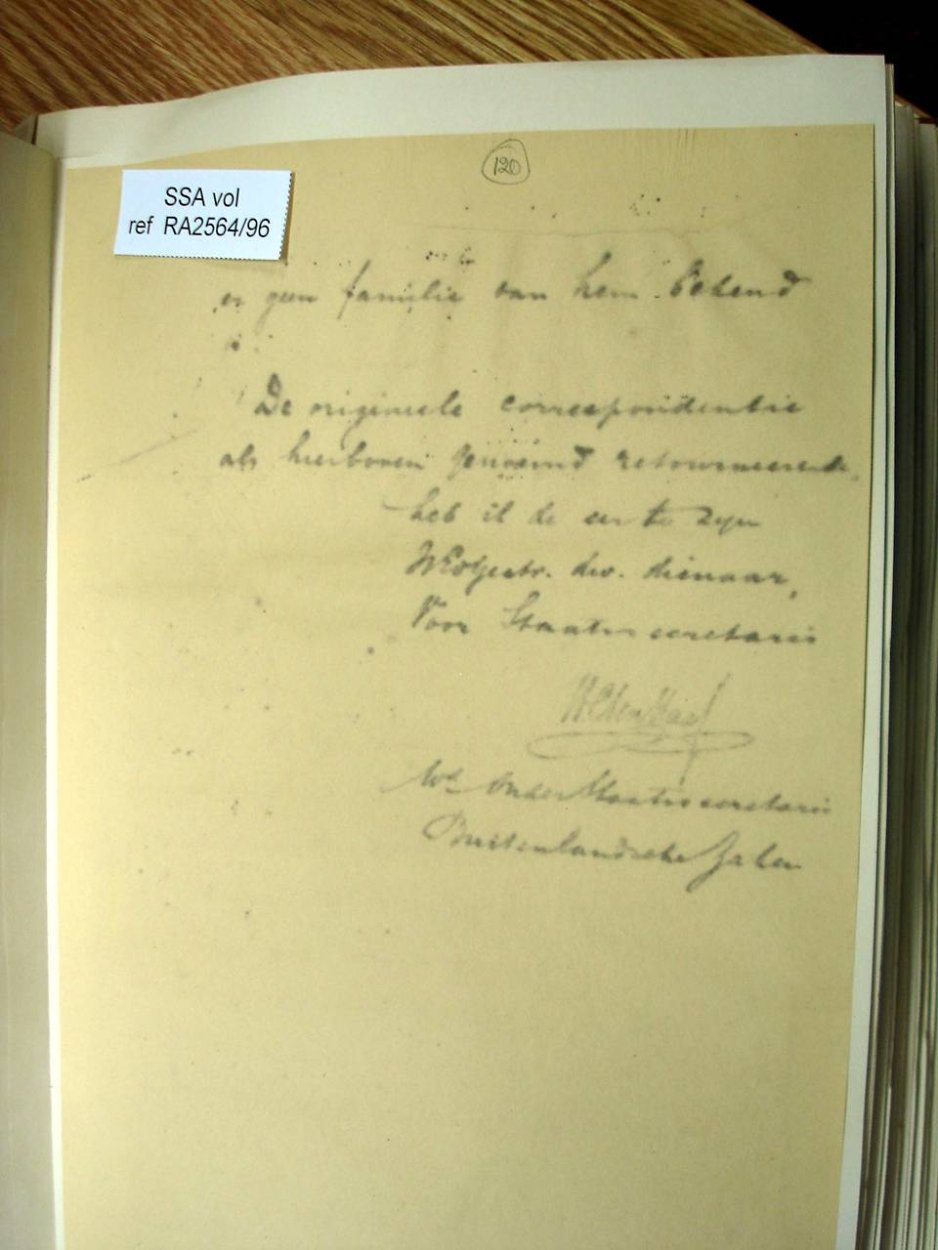 120
SSA vol
ref RA2564/96
er geen familie van hem bekend
is.
De origineele correspondentie
als hierboven genoemd retourneerende,
heb ik de eer te zyn
WEdGestr. dw. dienaar,
Voor Staatssecretaris
Wd Onder Staatssecretaris
Buitenlandsche Zaken